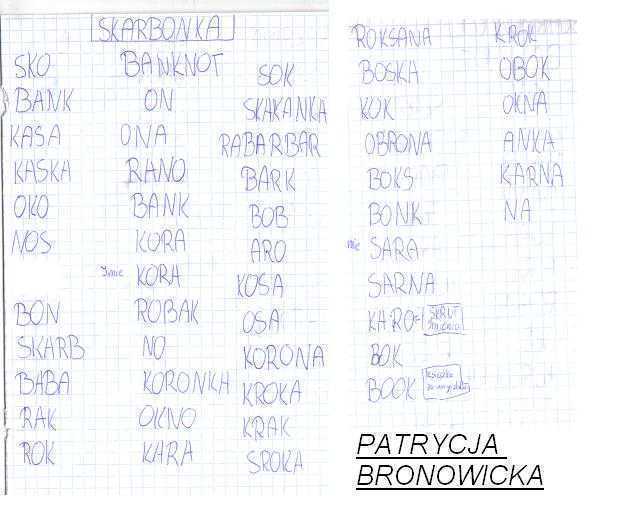 SKARBONKA
SKO
BANK
KASA
KASKA
OKO
NOS
BON
SKARB
BABA
RAK
ROK
BANKNOT
ON
ONA
RANO
BANK
KORA
KORA
ROBAK
NO
KORONKA
OKNO
KARA
SOK
SKAKANKA
RABARBAR
BARK
BOB
ARO
KOSA
OSA
KORONA
KROKA
KRAK
SROKA
ROKSANA
BOSKA
KOK
OBRONA
BOKS
BONK
SARA
SARNA
KARO= SKRÓT
BOK
BOOK
KROK
OBOK
OKNA
ANKA
KARNA
NA
PATRYCJA
BRONOWICKA